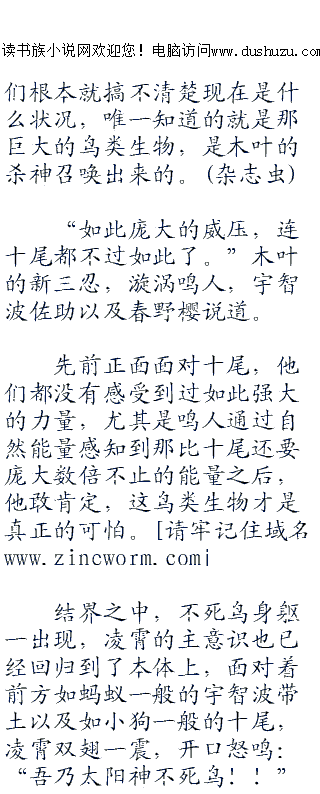 读书族小说网欢迎您！电脑访问www.dushuzu.com
们根本就搞不清楚现在是什
么状况，唯一知道的就是那
巨大的鸟类生物，是木叶的
杀神召唤出来的。(杂志虫)
“如此庞大的威压，连
十尾都不过如此了。”木叶
的新三忍，漩涡鸣人，宇智
波佐助以及春野樱说道。
先前正面面对十尾，他
们都没有感受到过如此强大
的力量，尤其是鸣人通过自
然能量感知到那比十尾还要
庞大数倍不止的能量之后，
他敢肯定，这鸟类生物才是
真正的可怕。[请牢记住域名
www.zincworm.com¡
结界之中，不死鸟身躯
一出现，凌霄的主意识也已
经回归到了本体上，面对着
前方如蚂蚁一般的宇智波带
土以及如小狗一般的十尾，
凌霄双翅一震，开口怒鸣：
“吾乃太阳神不死鸟！！”